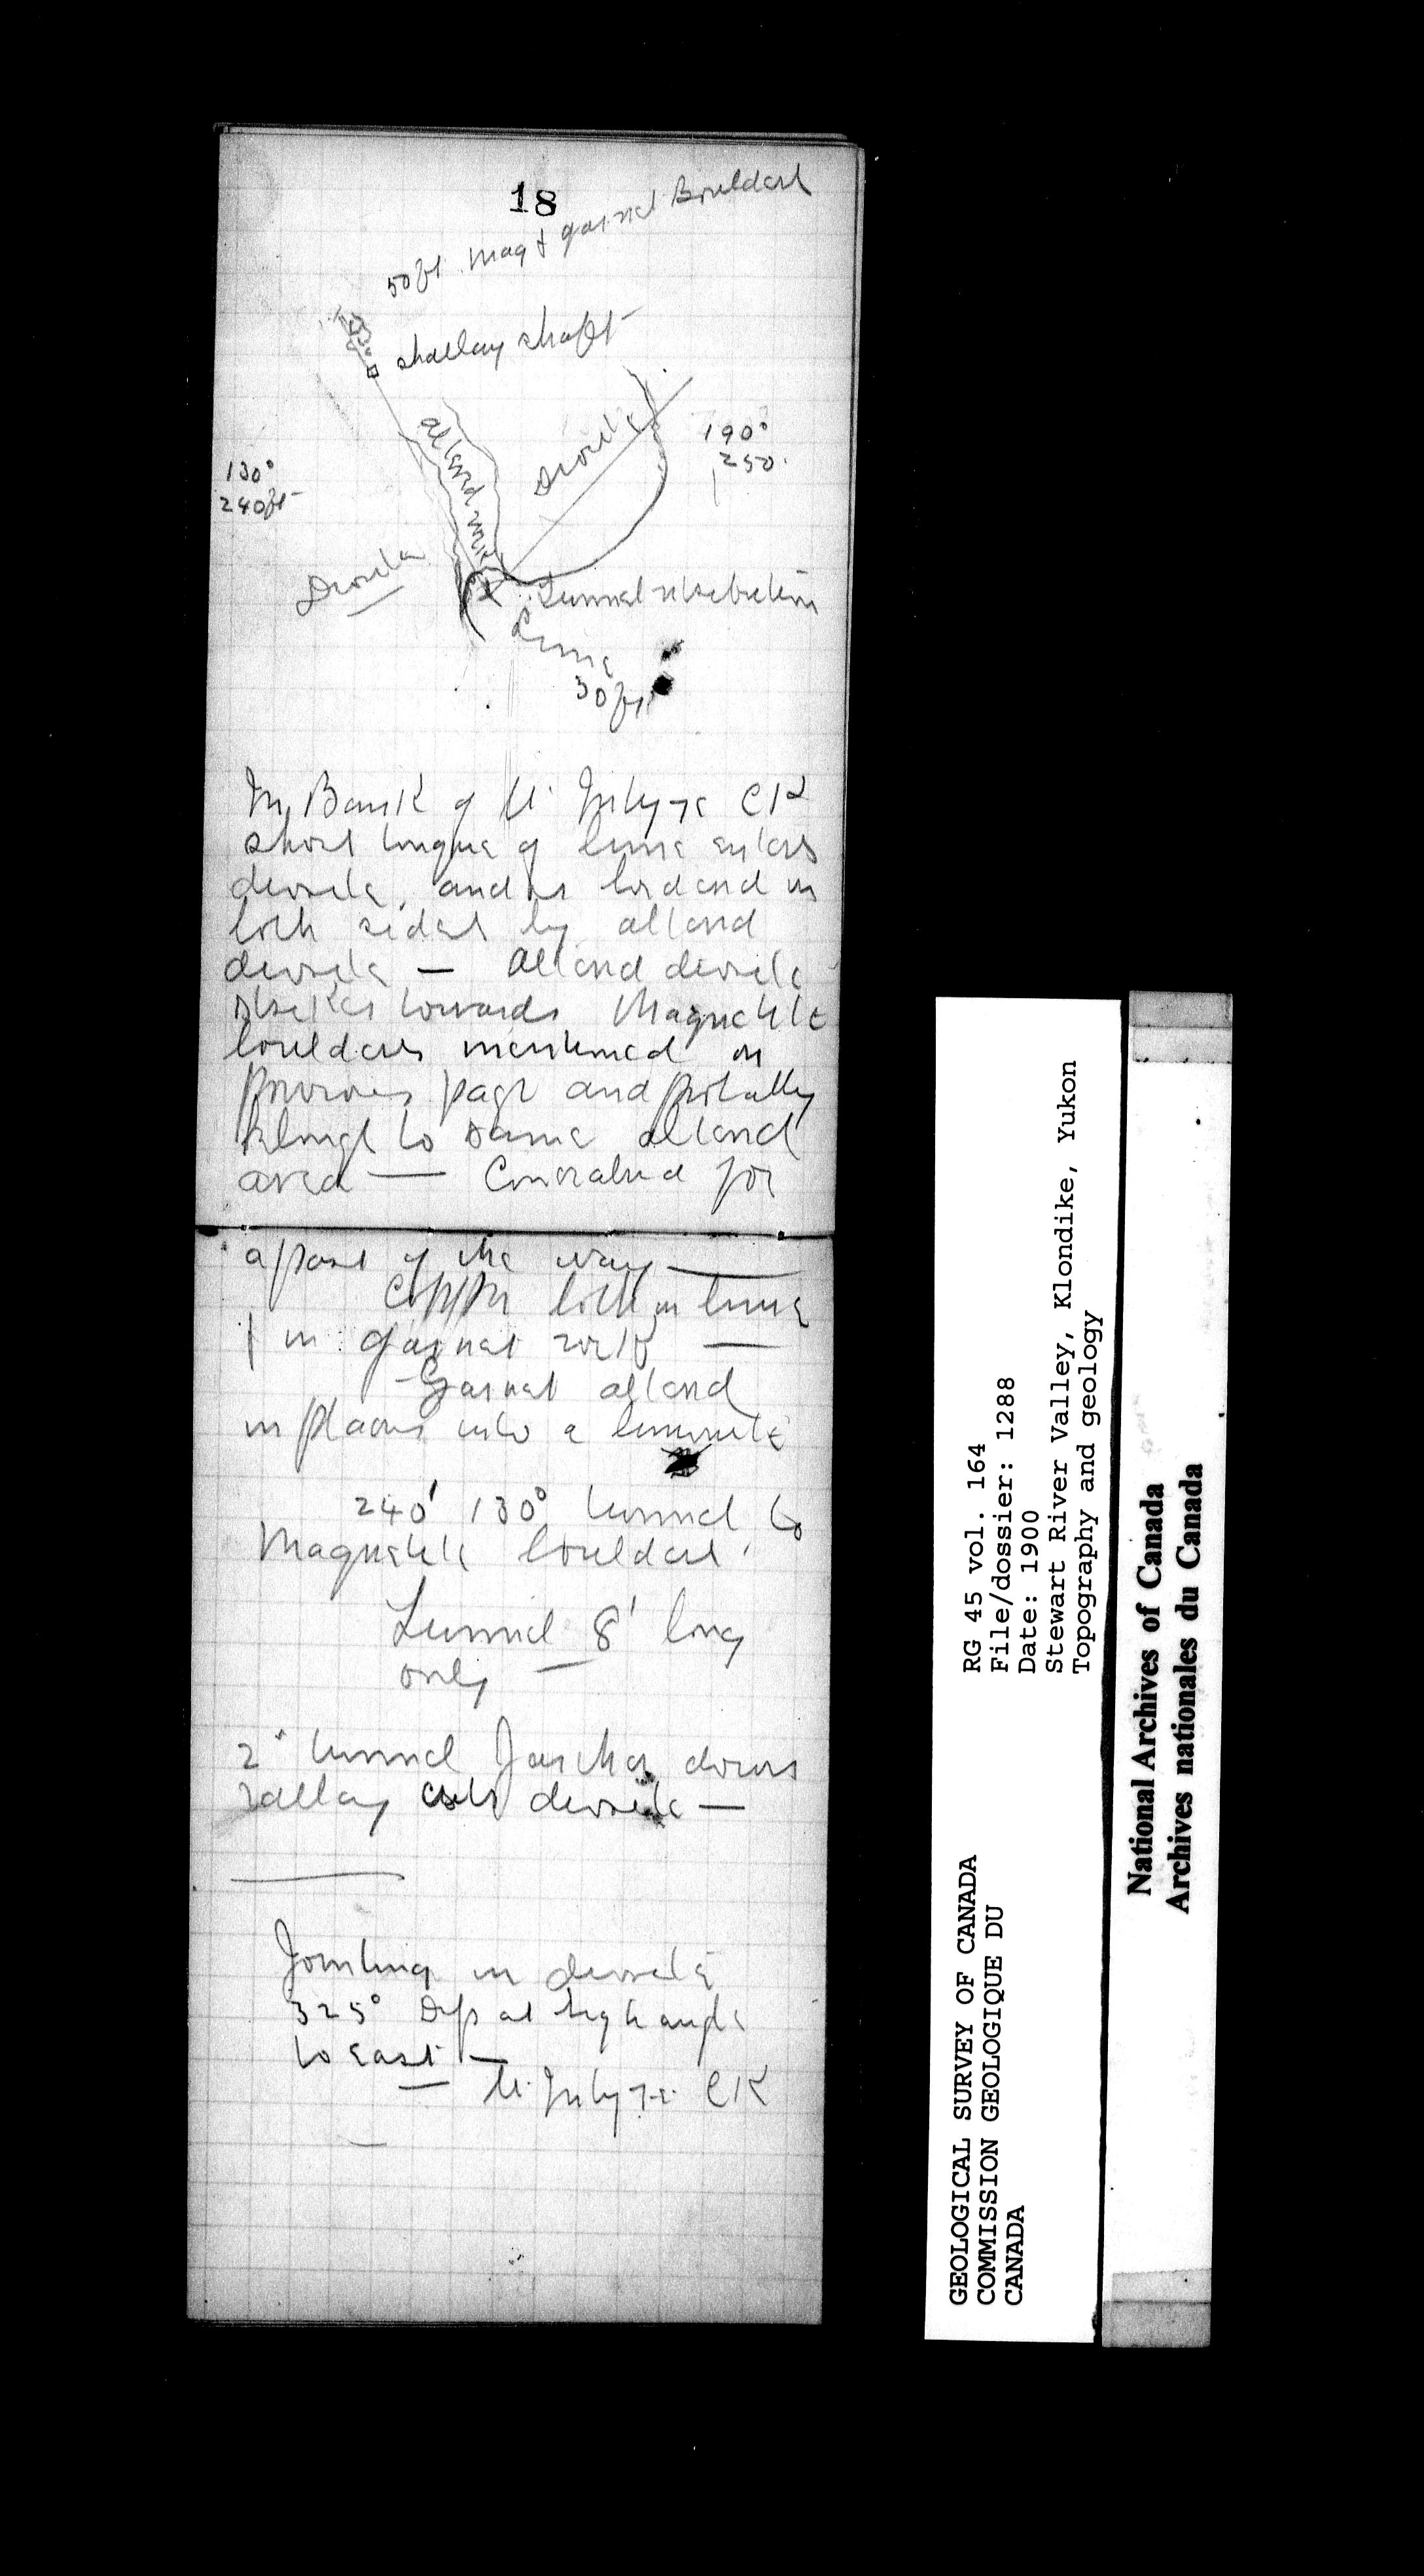 18
50 ft mag & garnet Boulders
shallow shaft
altered rock
Diorite
190°
250
130°
240 ft
Diorite
Tunnel
Lime
30 ft
In Bank of McIntyre CK
short tongue of lime enters
diorite, and is bordered on
both sides by altered
diorite — Altered diorite
strikes towards Magnetite
boulders mentioned on
previous page and probably
belongs to same altered
area — Concealed for
a part of the way —
Copper both in lime
& in garnet rock —
Garnet altered
in places into a limonite
240' 130° tunnel to
Magnetite boulders.
Tunnel 8' long
only —
2nd tunnel farther down
valley cuts diorite —
Jointing in diorite
325° Dip at high angle
to east —
— McIntyre CK
GEOLOGICAL SURVEY OF CANADA
COMMISSION GEOLOGIQUE DU
CANADA
RG 45 vol. 164
File/dossier: 1288
Date: 1900
Stewart River Valley, Klondike, Yukon
Topography and geology
National Archives of Canada
Archives nationales du Canada